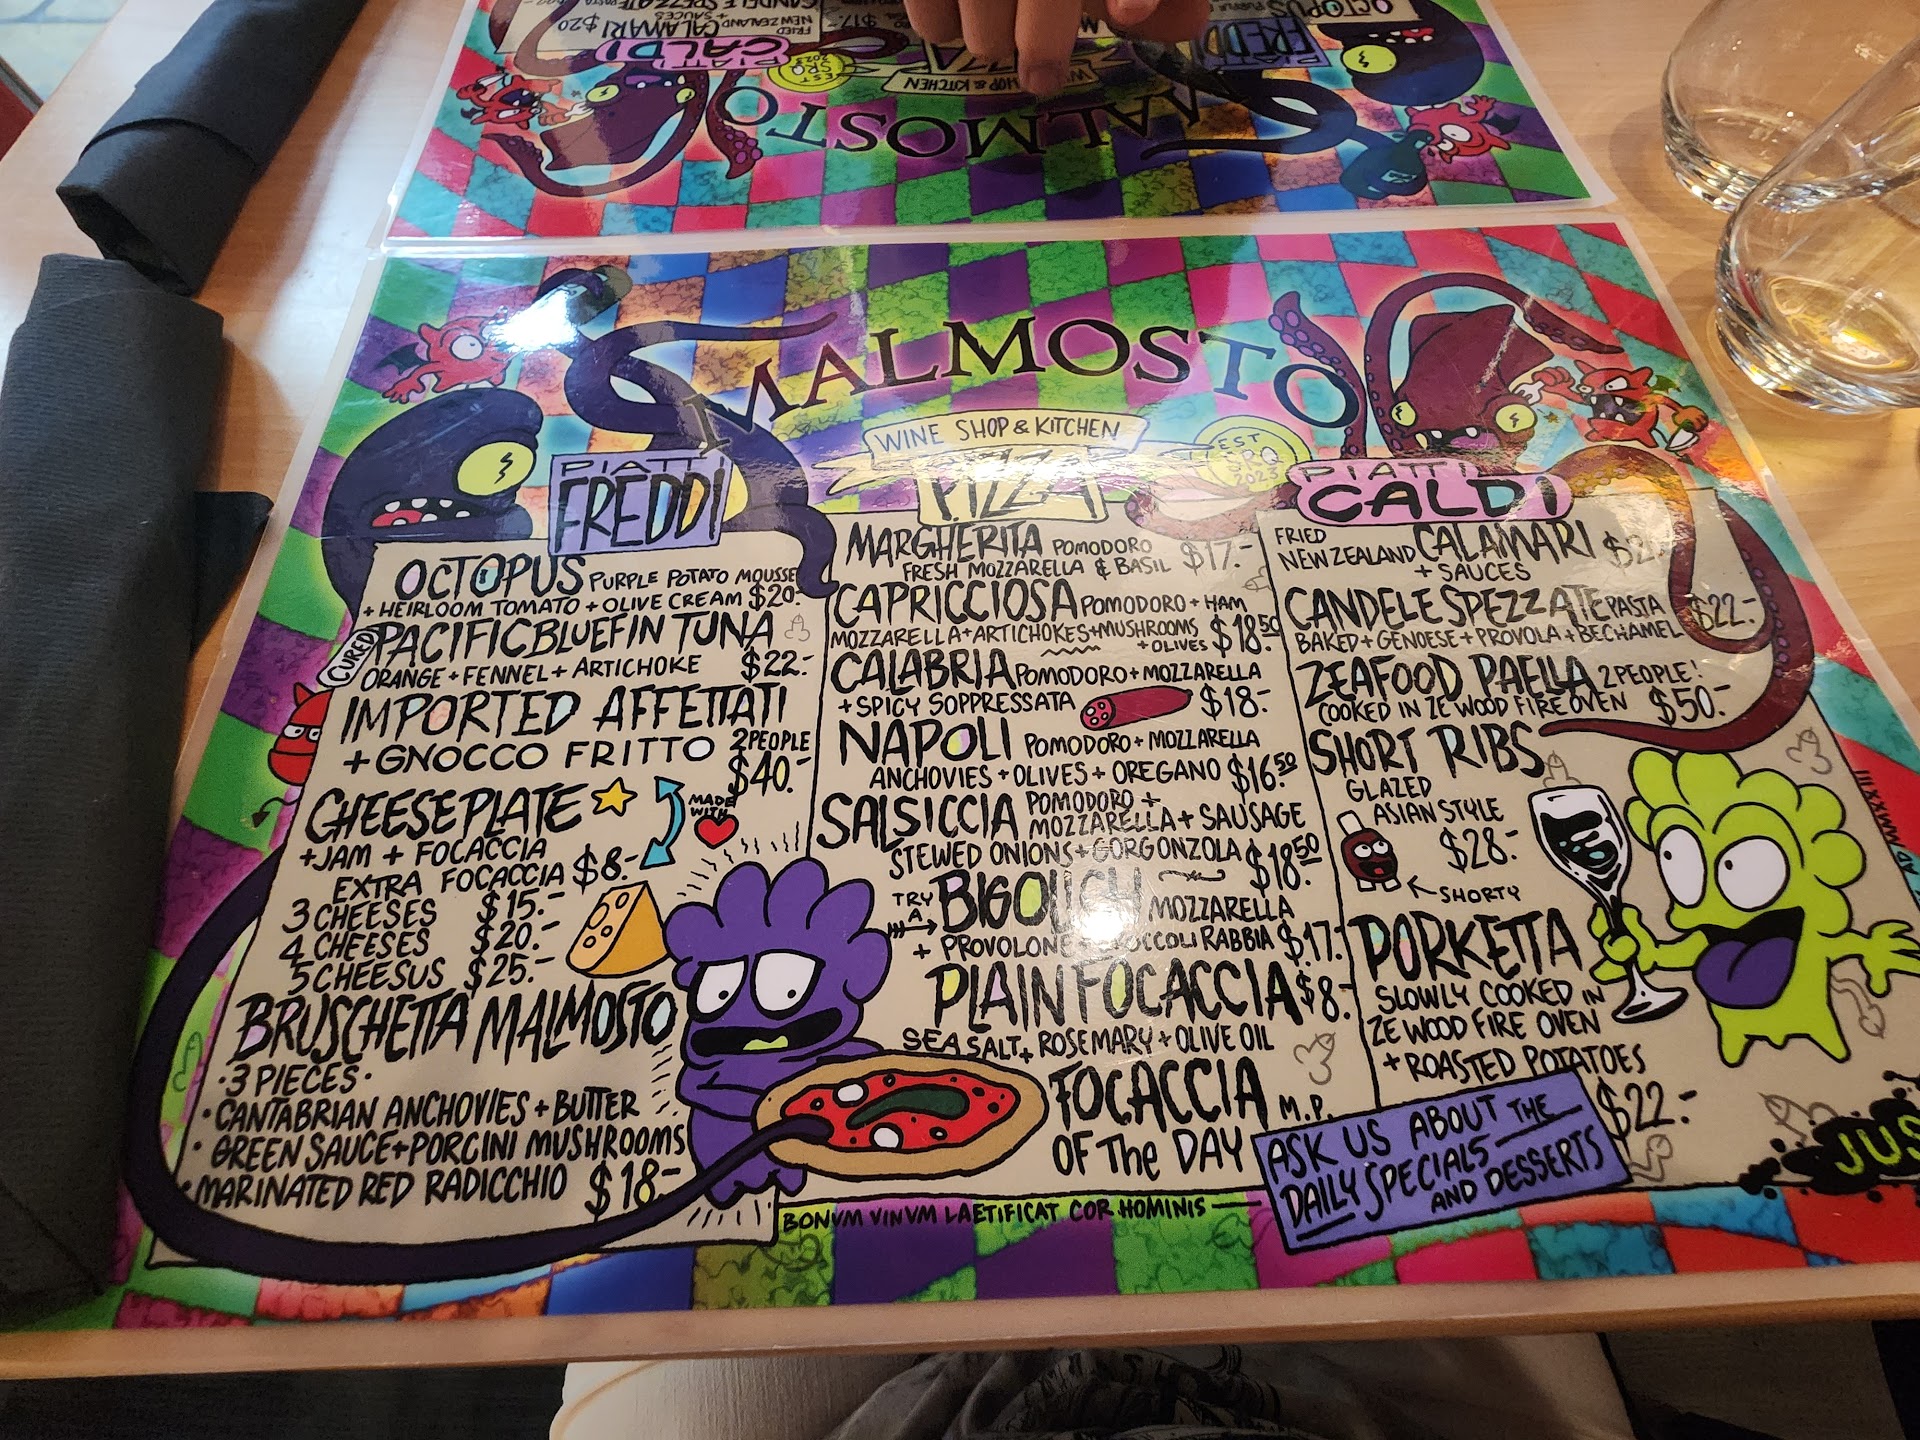 CANDELE SPEZZATE PASTA
FRIED
NEW ZEALAND CALAMARI $20
+ SAUCES
PIATTI
CALDI
EST
2023
$17.-
WINE SHOP & KITCHEN
OCTOPUS
PIATTI
FREDDI
MALMOSTO
MALMOSTO
WINE SHOP & KITCHEN
EST
2023
PIATTI
FREDDI
OCTOPUS PURPLE POTATO MOUSSE
+ HEIRLOOM TOMATO + OLIVE CREAM $20.-
CURED PACIFIC BLUEFIN TUNA
ORANGE + FENNEL + ARTICHOKE $22.-
IMPORTED AFFETTATI
+ GNOCCO FRITTO 2 PEOPLE
$40.-
CHEESE PLATE
MADE
WITH
+ JAM + FOCACCIA
EXTRA FOCACCIA $8.-
3 CHEESES $15.-
4 CHEESES $20.-
5 CHEESUS $25.-
BRUSCHETTA MALMOSTO
• 3 PIECES •
• CANTABRIAN ANCHOVIES + BUTTER
• GREEN SAUCE + PORCINI MUSHROOMS
• MARINATED RED RADICCHIO $18.-
PIZZA
MARGHERITA POMODORO $17.-
FRESH MOZZARELLA & BASIL
CAPRICCIOSA POMODORO + HAM
MOZZARELLA + ARTICHOKES + MUSHROOMS $18.50
+ OLIVES
CALABRIA POMODORO + MOZZARELLA
+ SPICY SOPPRESSATA $18.-
NAPOLI POMODORO + MOZZARELLA
ANCHOVIES + OLIVES + OREGANO $16.50
SALSICCIA POMODORO +
MOZZARELLA + SAUSAGE
STEWED ONIONS + GORGONZOLA $18.50
TRY
A
MOZZARELLA
+ PROVOLONE RABBIA $17.-
PLAIN FOCACCIA $8.-
SEA SALT + ROSEMARY + OLIVE OIL
FOCACCIA M.P.
OF The DAY
BONVM VINVM LAETIFICAT COR HOMINIS
PIATTI
CALDI
FRIED
NEW ZEALAND CALAMARI
+ SAUCES
CANDELE SPEZZATE PASTA $22.-
BAKED + GENOESE + PROVOLA + BECHAMEL
ZEAFOOD PAELLA 2 PEOPLE!
COOKED IN ZE WOOD FIRE OVEN $50.-
SHORT RIBS
GLAZED
ASIAN STYLE
$28.-
SHORTY
PORKETTA
SLOWLY COOKED IN
ZE WOOD FIRE OVEN
+ ROASTED POTATOES
$22.-
ASK US ABOUT THE
DAILY SPECIALS
AND DESSERTS
AD MMXXIII
JUS